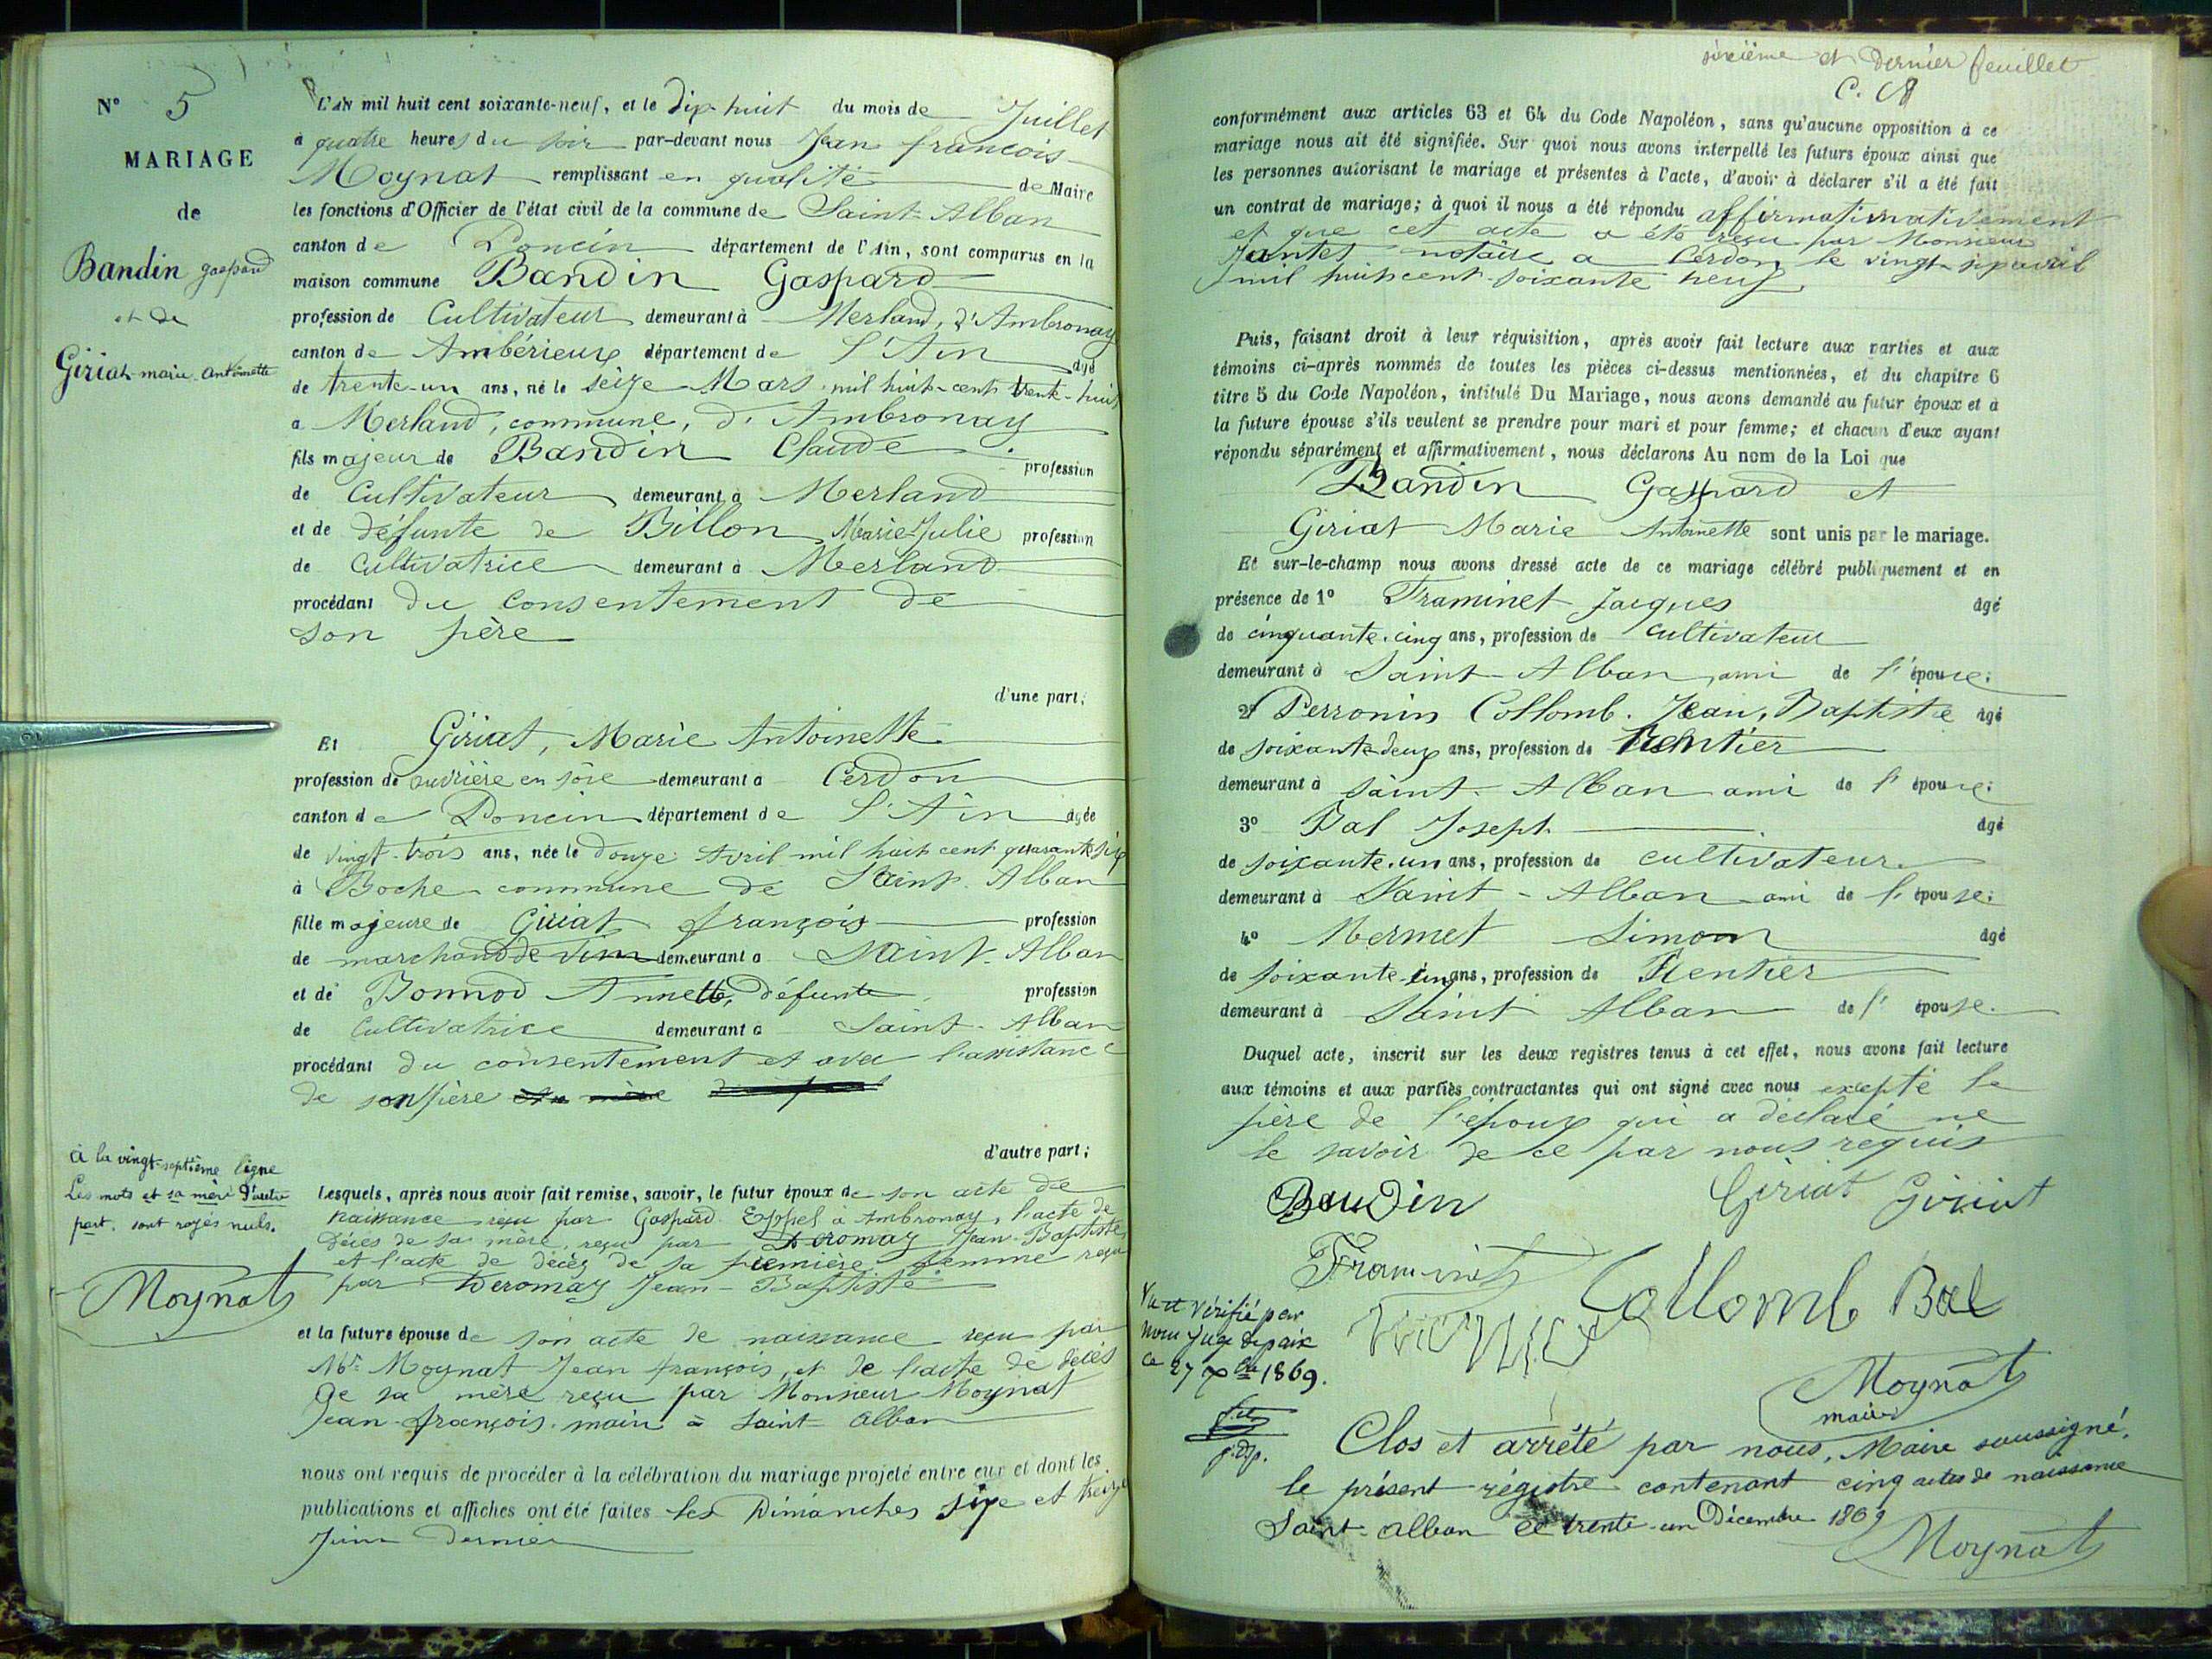 N° 5
MARIAGE
de
Bandin gaspard
et de
Giriat marie antoinette
L'AN mil huit cent soixante-neuf, et le dix-huit du mois de Juillet
à quatre heures du soir par-devant nous Jean françois
Moynat remplissant en qualité de Maire
les fonctions d'Officier de l'état civil de la commune de Saint-Alban
canton de Poncin département de l'Ain, sont comparus en la
maison commune Bandin Gaspard
profession de Cultivateur demeurant à Merland, d'Ambronay
canton de Ambérieux département de l'Ain âgé
de trente-un ans, né le seize Mars mil huit-cent trente-huit
à Merland, commune, d'Ambronay
fils majeur de Bandin Claude profession
de Cultivateur demeurant à Merland
et de défunte de Billon Marie-Julie profession
de Cultivatrice demeurant à Merland
procédant du consentement de
son père
d'une part;
Et Giriat, Marie Antoinette
profession de ouvrière en soie demeurant à Cerdon
canton de Poncin département de l'Ain âgée
de vingt-trois ans, née le douze Avril mil huit cent quarante six
à Boche commune de Saint-Alban
fille majeure de Giriat françois profession
de marchand de vin demeurant à Saint-Alban
et de Bonnod Annette, défunte profession
de Cultivatrice demeurant à Saint-Alban
procédant du consentement et avec l'assistance
de son père et sa mère
d'autre part;
à la vingt-septième ligne
Les mots et sa mère d'autre
part. sont rayés nuls.
Moynat
Lesquels, après nous avoir fait remise, savoir, le futur époux de son acte de
naissance reçu par Gaspard Eppel à Ambronay, l'acte de
décès de sa mère, reçu par Deromay Jean-Baptiste
et l'acte de décès de sa première femme reçu
par Deromay Jean-Baptiste
et la future épouse de son acte de naissance reçu par
Mr Moynat Jean françois, et de l'acte de décès
de sa mère reçu par Monsieur Moynat
Jean-françois maire à Saint-Alban
nous ont requis de procéder à la célébration du mariage projeté entre eux et dont les
publications et affiches ont été faites les Dimanches six et treize
Juin dernier
sixième et dernier feuillet
conformément aux articles 63 et 64 du Code Napoléon, sans qu'aucune opposition à ce
mariage nous ait été signifiée. Sur quoi nous avons interpellé les futurs époux ainsi que
les personnes autorisant le mariage et présentes à l'acte, d'avoir à déclarer s'il a été fait
un contrat de mariage; à quoi il nous a été répondu affirmatimativement
et que cet acte a été reçu par Monsieur
Jantet notaire a Cerdon, le vingt six avril
mil huit cent soixante neuf.
Puis, faisant droit à leur réquisition, après avoir fait lecture aux parties et aux
témoins ci-après nommés de toutes les pièces ci-dessus mentionnées, et du chapitre 6
titre 5 du Code Napoléon, intitulé Du Mariage, nous avons demandé au futur époux et à
la future épouse s'ils veulent se prendre pour mari et pour femme; et chacun d'eux ayant
répondu séparément et affirmativement, nous déclarons Au nom de la Loi que
Bandin Gaspard et
Giriat Marie Antoinette sont unis par le mariage.
Et sur-le-champ nous avons dressé acte de ce mariage célébré publiquement et en
présence de 1° Framinet Jacques âgé
de cinquante-cinq ans, profession de cultivateur
demeurant à Saint-Alban, ami de l'épouse;
2° Perronin Collomb. Jean, Baptiste âgé
de soixante-deux ans, profession de Rentier
demeurant à Saint-Alban ami de l'épouse;
3° Bal Joseph âgé
de soixante-un ans, profession de cultivateur
demeurant à Saint-Alban ami de l'épouse;
4° Mermet Simon âgé
de soixante-cinq ans, profession de Rentier
demeurant à Saint Alban de l'épouse.
Duquel acte, inscrit sur les deux registres tenus à cet effet, nous avons fait lecture
aux témoins et aux parties contractantes qui ont signé avec nous excepté le
père de l'époux qui a déclaré ne
le savoir de ce par nous requis
Baudin Giriat Giriat
Framinet Collomb Bal
Vu et vérifié par
nous Juge de paix
ce 27 Xbre 1869.
j.d.p.
Moynat
maire
Clos et arrêté par nous, Maire soussigné,
le présent régistre contenant cinq actes de naissance
Saint-Alban le trente-un Décembre 1869
Moynat